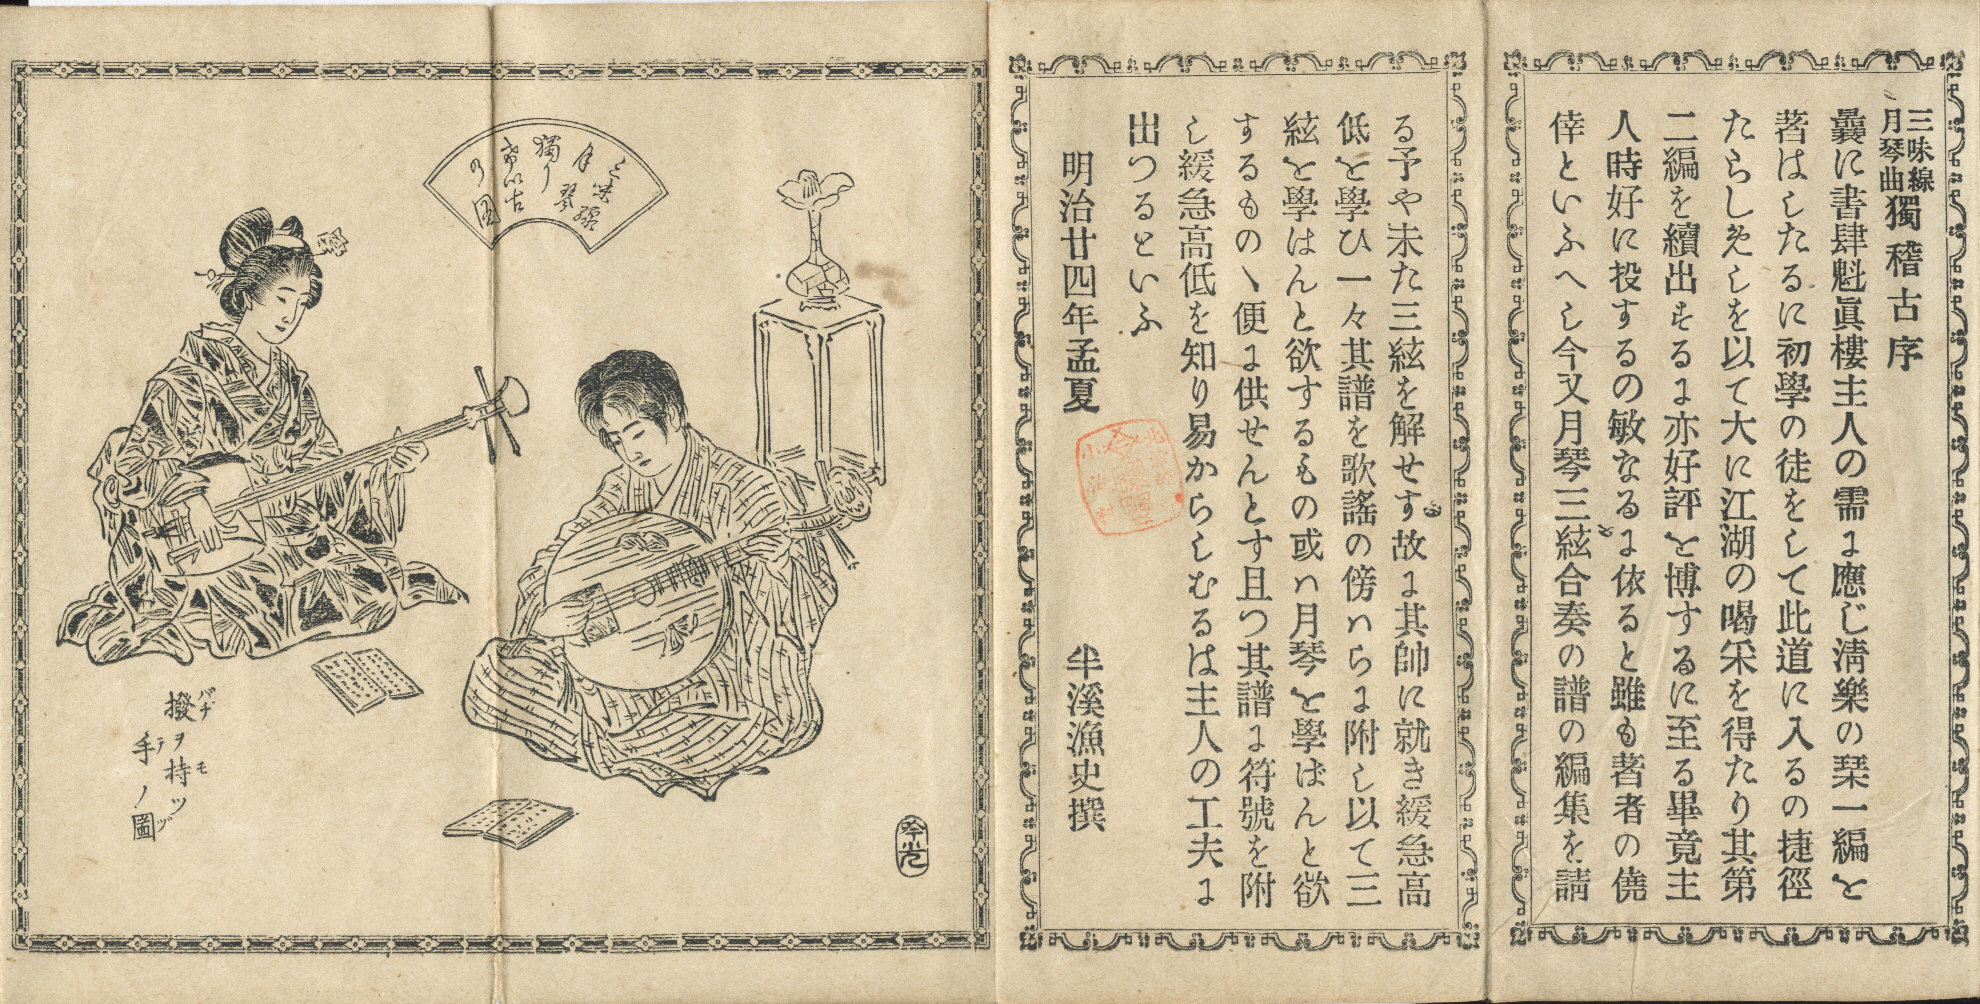 三味線
月琴曲獨稽古序
曩に書肆魁眞樓主人の需に應じ淸樂の栞一編を
著はしたるに初學の徒をして此道に入るの捷徑
たらしめしを以て大に江湖の喝采を得たり其第
二編を續出するに亦好評を博するに至る畢竟主
人時好に投するの敏なるに依ると雖も著者の僥
倖といふへし今又月琴三絃合奏の譜の編集を請
る予や未た三絃を解せす故に其師に就き緩急高
低を學ひ一々其譜を歌謠の傍ハらに附し以て三
絃を學はんと欲するもの或ハ月琴を學ばんと欲
するものゝ便に供せんとす且つ其譜に符號を附
し緩急高低を知り易からしむるは主人の工夫に
出つるといふ
明治廿四年孟夏
半溪漁史撰
三味線
月琴
獨り
けい古
の圖
撥ヲ持ツ
バチ モ
手ノ圖
テ ヅ
吟光